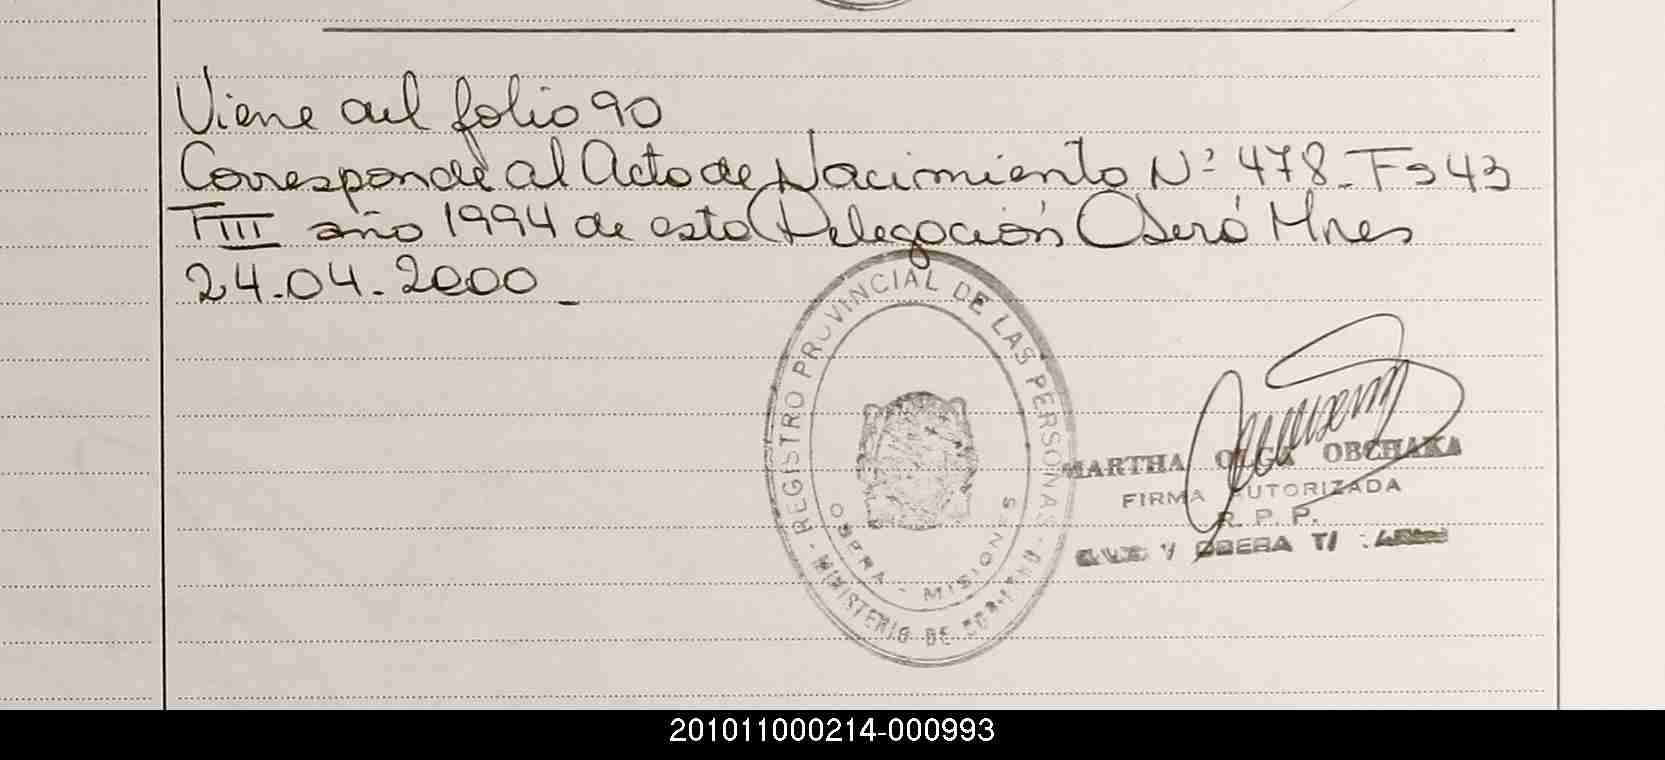 Viene del folio 90
Corresponde al Acta de Nacimiento Nº 478 - Fs 43
T III año 1994 de esta Delegación Oberá Mnes
24.04.2000_
REGISTRO PROVINCIAL DE LAS PERSONAS
MINISTERIO DE
OBERA - MISIONES
MARTHA OLGA OBCHAKA
FIRMA AUTORIZADA
R. P. P.
OBERA
201011000214-000993